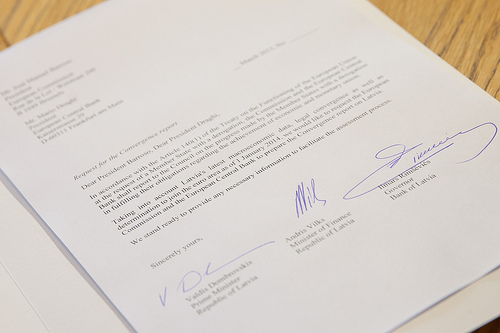 March 2013, No.
Mr. José Manuel Barroso
President
European Commission
Rue de la Loi - Wetstraat 200
Mr. Mario Draghi
President
European Central Bank
Kaiserstrasse 29
D-60311 Frankfurt am Main
Request for the Convergence report
Dear President Barroso, Dear President Draghi,
In accordance with the Article 140(1) of the Treaty on the Functioning of the European Union
at the request of a Member State with a derogation, the Commission and the European Central
Bank shall report to the Council on the progress made by the Member States with a derogation
in fulfilling their obligations regarding the achievement of economic and monetary union.
Taking into account Latvia's latest macroeconomic data, legal convergence as well as
determination to join the euro area as of 1 January 2014, we would like to request the European
Commission and the European Central Bank to prepare the Convergence report on Latvia.
We stand ready to provide any necessary information to facilitate the assessment process.
Sincerely yours,
Valdis Dombrovskis
Prime Minister
Republic of Latvia
Andris Vilks
Minister of Finance
Republic of Latvia
Ilmārs Rimšēvičs
Governor
Bank of Latvia